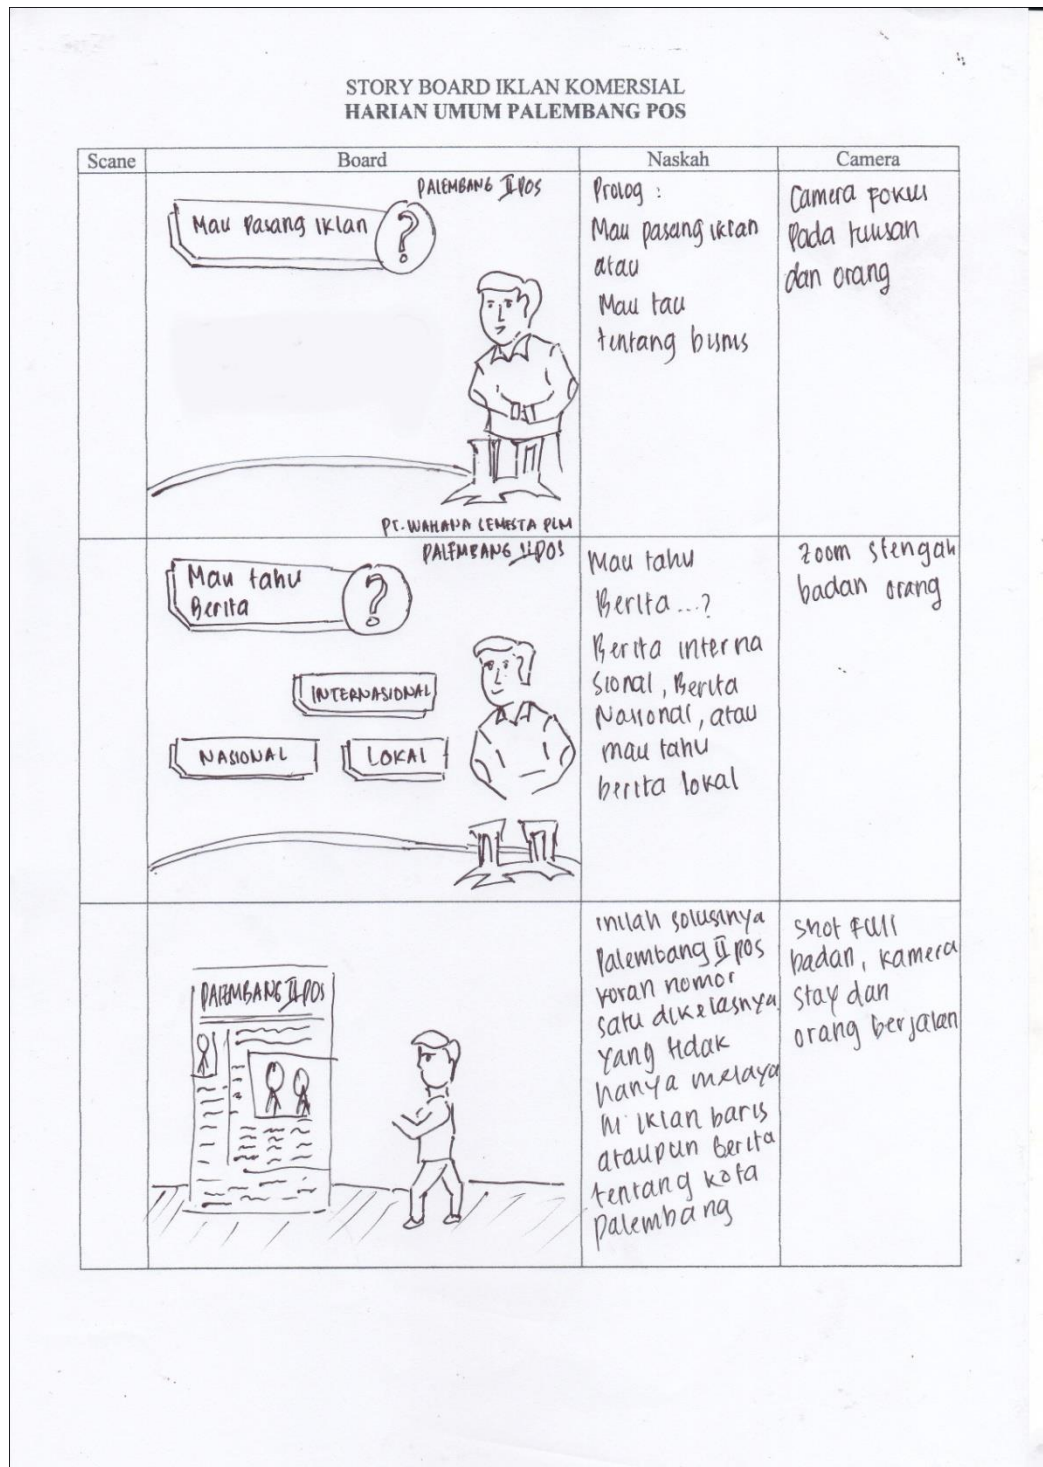 STORY BOARD IKLAN KOMERSIAL
HARIAN UMUM PALEMBANG POS
Scane
Board
Naskah
Camera
PALEMBANG POS
Mau Pasang Iklan ?
PT. WAHANA PLM
Prolog :
Mau pasang iklan
atau
Mau tau
tentang bisnis
Camera Fokus
Pada tulisan
dan orang
PALEMBANG POS
Mau tahu
Berita
?
INTERNASIONAL
NASIONAL
LOKAL
Mau tahu
Berita...?
Berita interna
sional, Berita
Nasional, atau
mau tahu
berita lokal
Zoom stengah
badan orang
PALEMBANG POS
inilah solusinya
Palembang pos
koran nomor
satu dikelasnya
yang tidak
hanya melaya
ni iklan baris
ataupun Berita
tentang kota
Palembang
Shot Full
badan, kamera
stay dan
orang berjalan